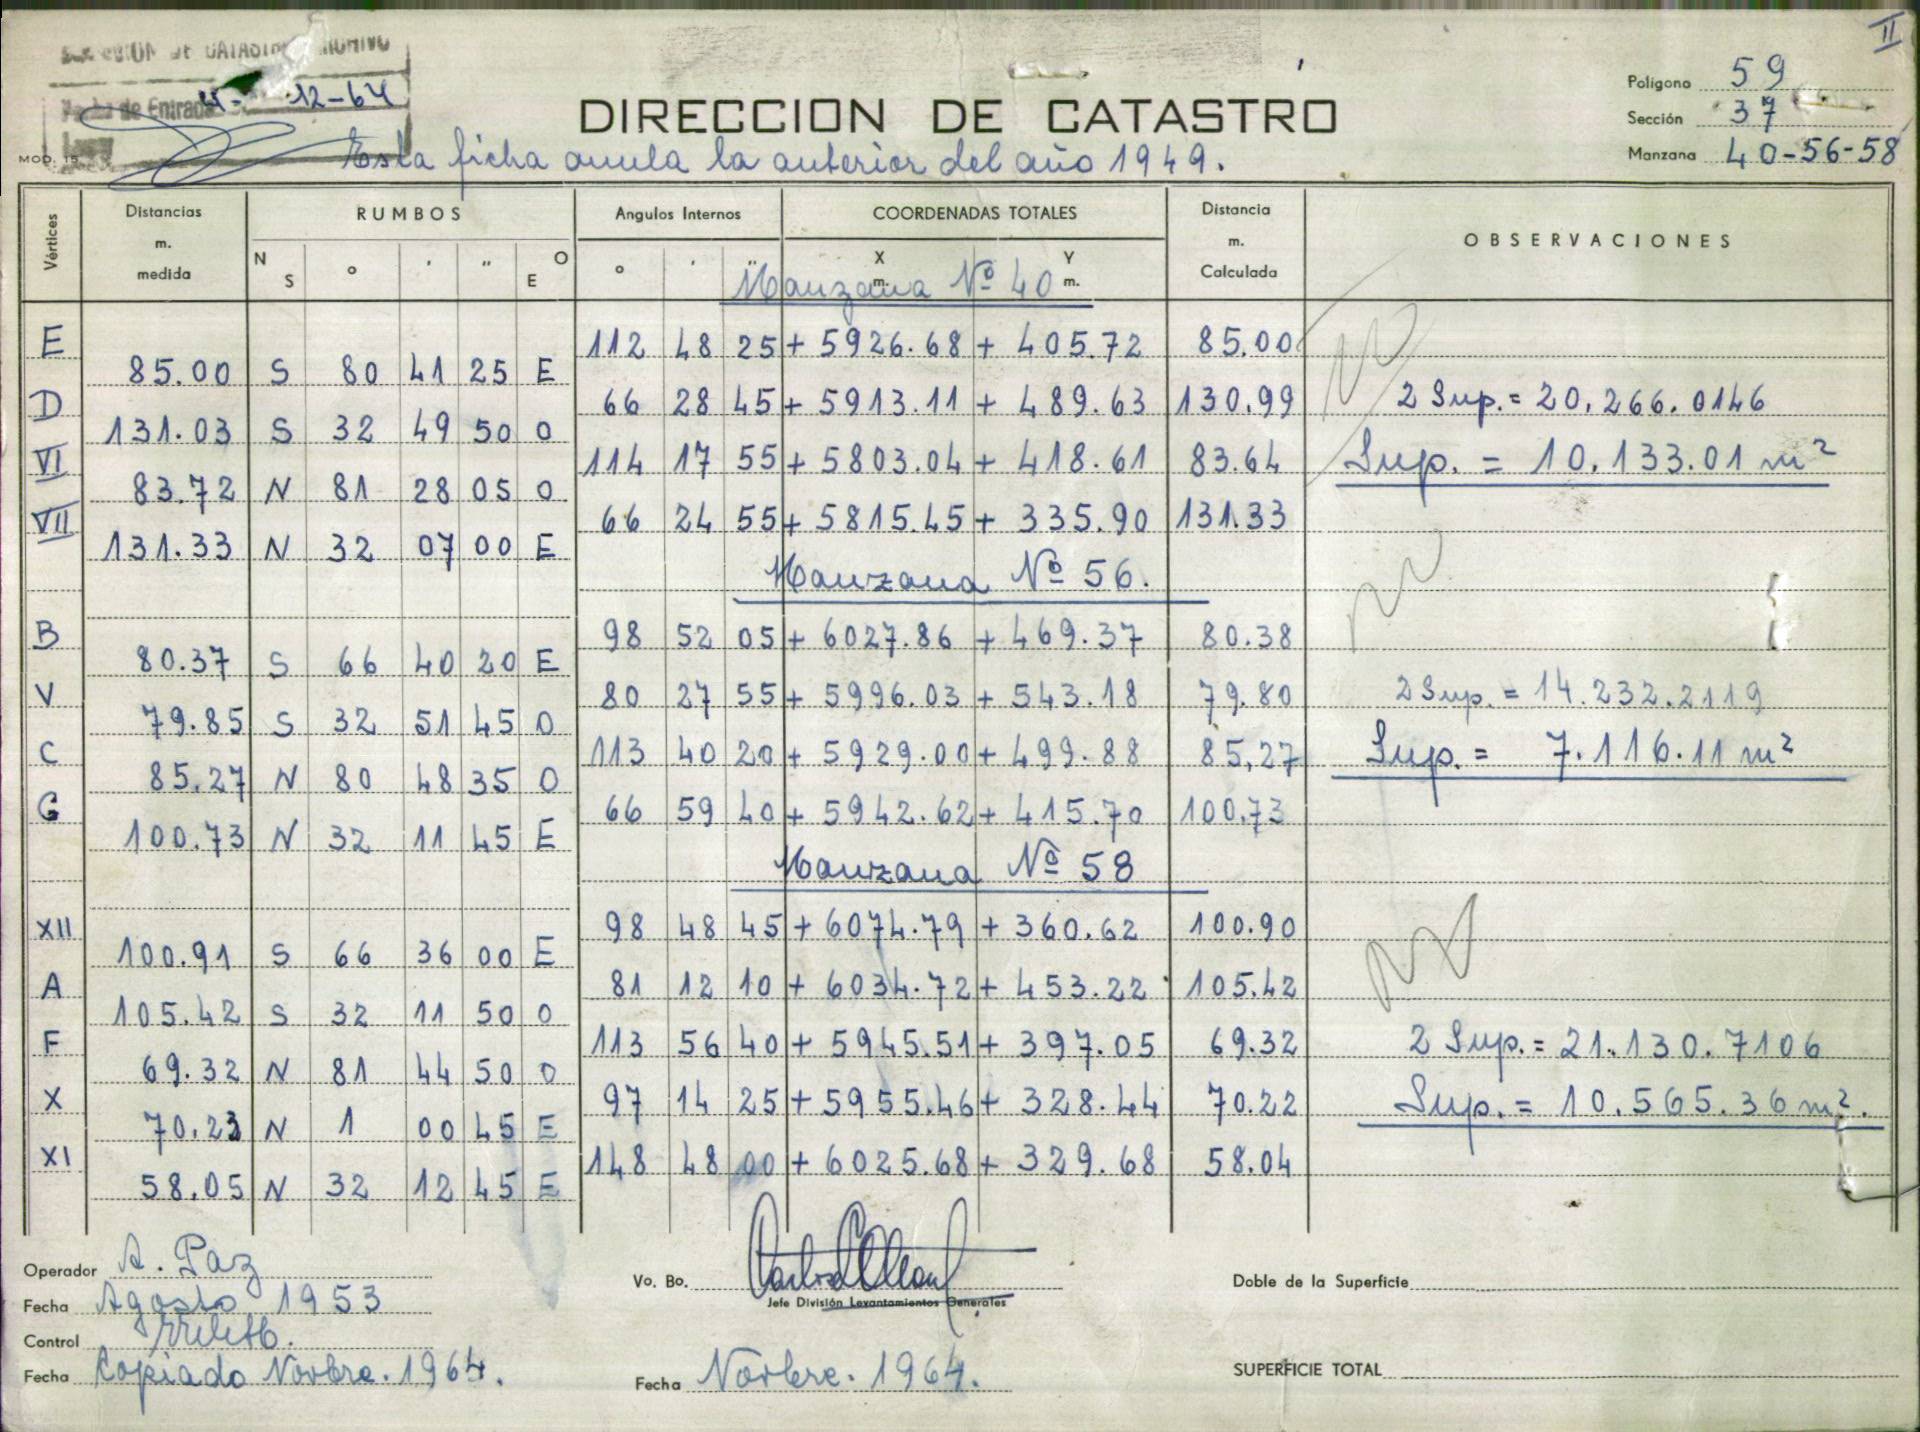 II
DE CATASTRO ARCHIVO
Fecha de Entrada 12-64
DIRECCION DE CATASTRO
Polígono 59
Sección 37
Manzana 40-56-58
MOD. 15
Esta ficha anula la anterior del año 1949.
Vértices Distancias m. medida RUMBOS Angulos Internos COORDENADAS TOTALES Distancia m. Calculada OBSERVACIONES
N S ° ' " O E ° ' " X m. Y m.
Manzana Nº 40
E 112 48 25 + 5926.68 + 405.72 85.00
85.00 S 80 41 25 E
D 66 28 45 + 5913.11 + 489.63 130.99 2 Sup. = 20.266.0146
131.03 S 32 49 50 O
VI 114 17 55 + 5803.04 + 418.61 83.64 Sup. = 10.133.01 m²
83.72 N 81 28 05 O
VII 66 24 55 + 5815.45 + 335.90 131.33
131.33 N 32 07 00 E
Manzana Nº 56.
B 98 52 05 + 6027.86 + 469.37 80.38
80.37 S 66 40 20 E
V 80 27 55 + 5996.03 + 543.18 79.80 2 Sup. = 14.232.2119
79.85 S 32 51 45 O
C 113 40 20 + 5929.00 + 499.88 85,27 Sup. = 7.116.11 m²
85.27 N 80 48 35 O
G 66 59 40 + 5942.62 + 415.70 100.73
100.73 N 32 11 45 E
Manzana Nº 58
XII 98 48 45 + 6074.79 + 360.62 100.90
100.91 S 66 36 00 E
A 81 12 10 + 6034.72 + 453.22 105.42
105.42 S 32 11 50 O
F 113 56 40 + 5945.51 + 397.05 69.32 2 Sup. = 21.130.7106
69.32 N 81 44 50 O
X 97 14 25 + 5955.46 + 328.44 70.22 Sup. = 10.565.36 m².
70.23 N 1 00 45 E
XI 148 48 00 + 6025.68 + 329.68 58.04
58.05 N 32 12 45 E
Operador A. Paz
Fecha Agosto 1953
Control
Fecha Copiado Novbre. 1964.
Vo. Bo.
Jefe División Levantamientos Generales
Fecha Novbre. 1964.
Doble de la Superficie
SUPERFICIE TOTAL